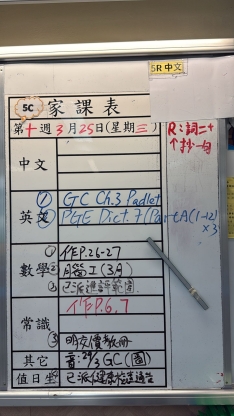 5R 中文
5C 家課表
第十週 3月25日(星期三)
R:詞二十
↑抄一句
中文
英文
① GC Ch.3 Padlet
② PGE Dict.7 (Part A(1-12)
×3
數學
① 作P.26-27
② 腦工(3A)
③ 已派
常識
作P.6,7
③
其它
音:29/3 GC(園)
值日生
已派健康